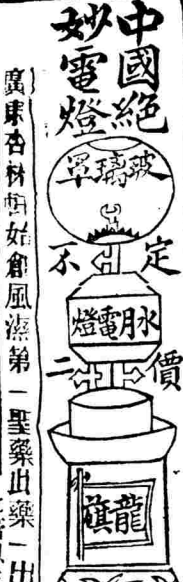 中國絕
妙電燈
玻璃罩
定
不
水月電燈
價
二
龍旗
廣東杏林恒始創風濕第一聖藥此藥一出